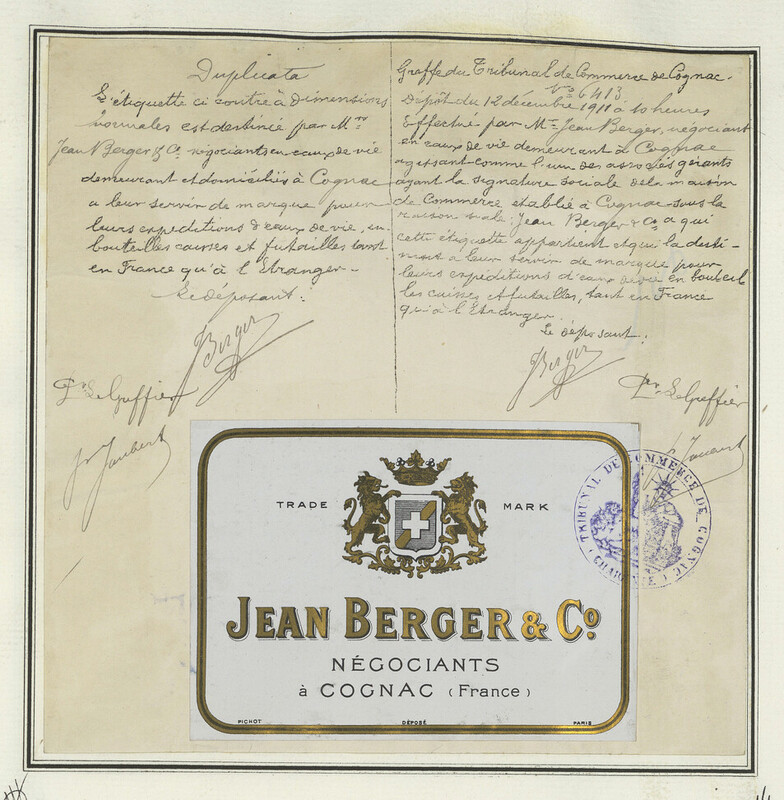 Duplicata
L'étiquette ci contre à dimensions
normales est destinée par Mrs
Jean Berger & Co négociants en eaux de vie
demeurant et domiciliés à Cognac
a leur servir de marque pour
leurs expeditions d'eaux de vie, en
bouteilles caisses et futailles tant
en France qu'à l'Etranger-
Le déposant:
Berger
Pr Le Greffier
Greffe du Tribunal de Commerce de Cognac.
No 6413
Dépôt du 12 décembre 1911 à 10 heures
Effectué par Mr Jean Berger, négociant
en eaux de vie demeurant à Cognac
agissant comme l'un des associés gérants
ayant la signature sociale de la maison
de Commerce établie à Cognac sous la
raison sociale: Jean Berger & Co a qui
cette étiquette appartient et qui la desti-
nent a leur servir de marque pour
leurs expéditions d'eaux de vie en bouteil
les caisses et futailles, tant en France
qu'à l'Etranger.
Le déposant:
Berger
Pr Le Greffier
TRADE MARK
JEAN BERGER & Co.
NÉGOCIANTS
à COGNAC (France)
PICHOT DÉPOSÉ PARIS
TRIBUNAL DE COMMERCE DE COGNAC